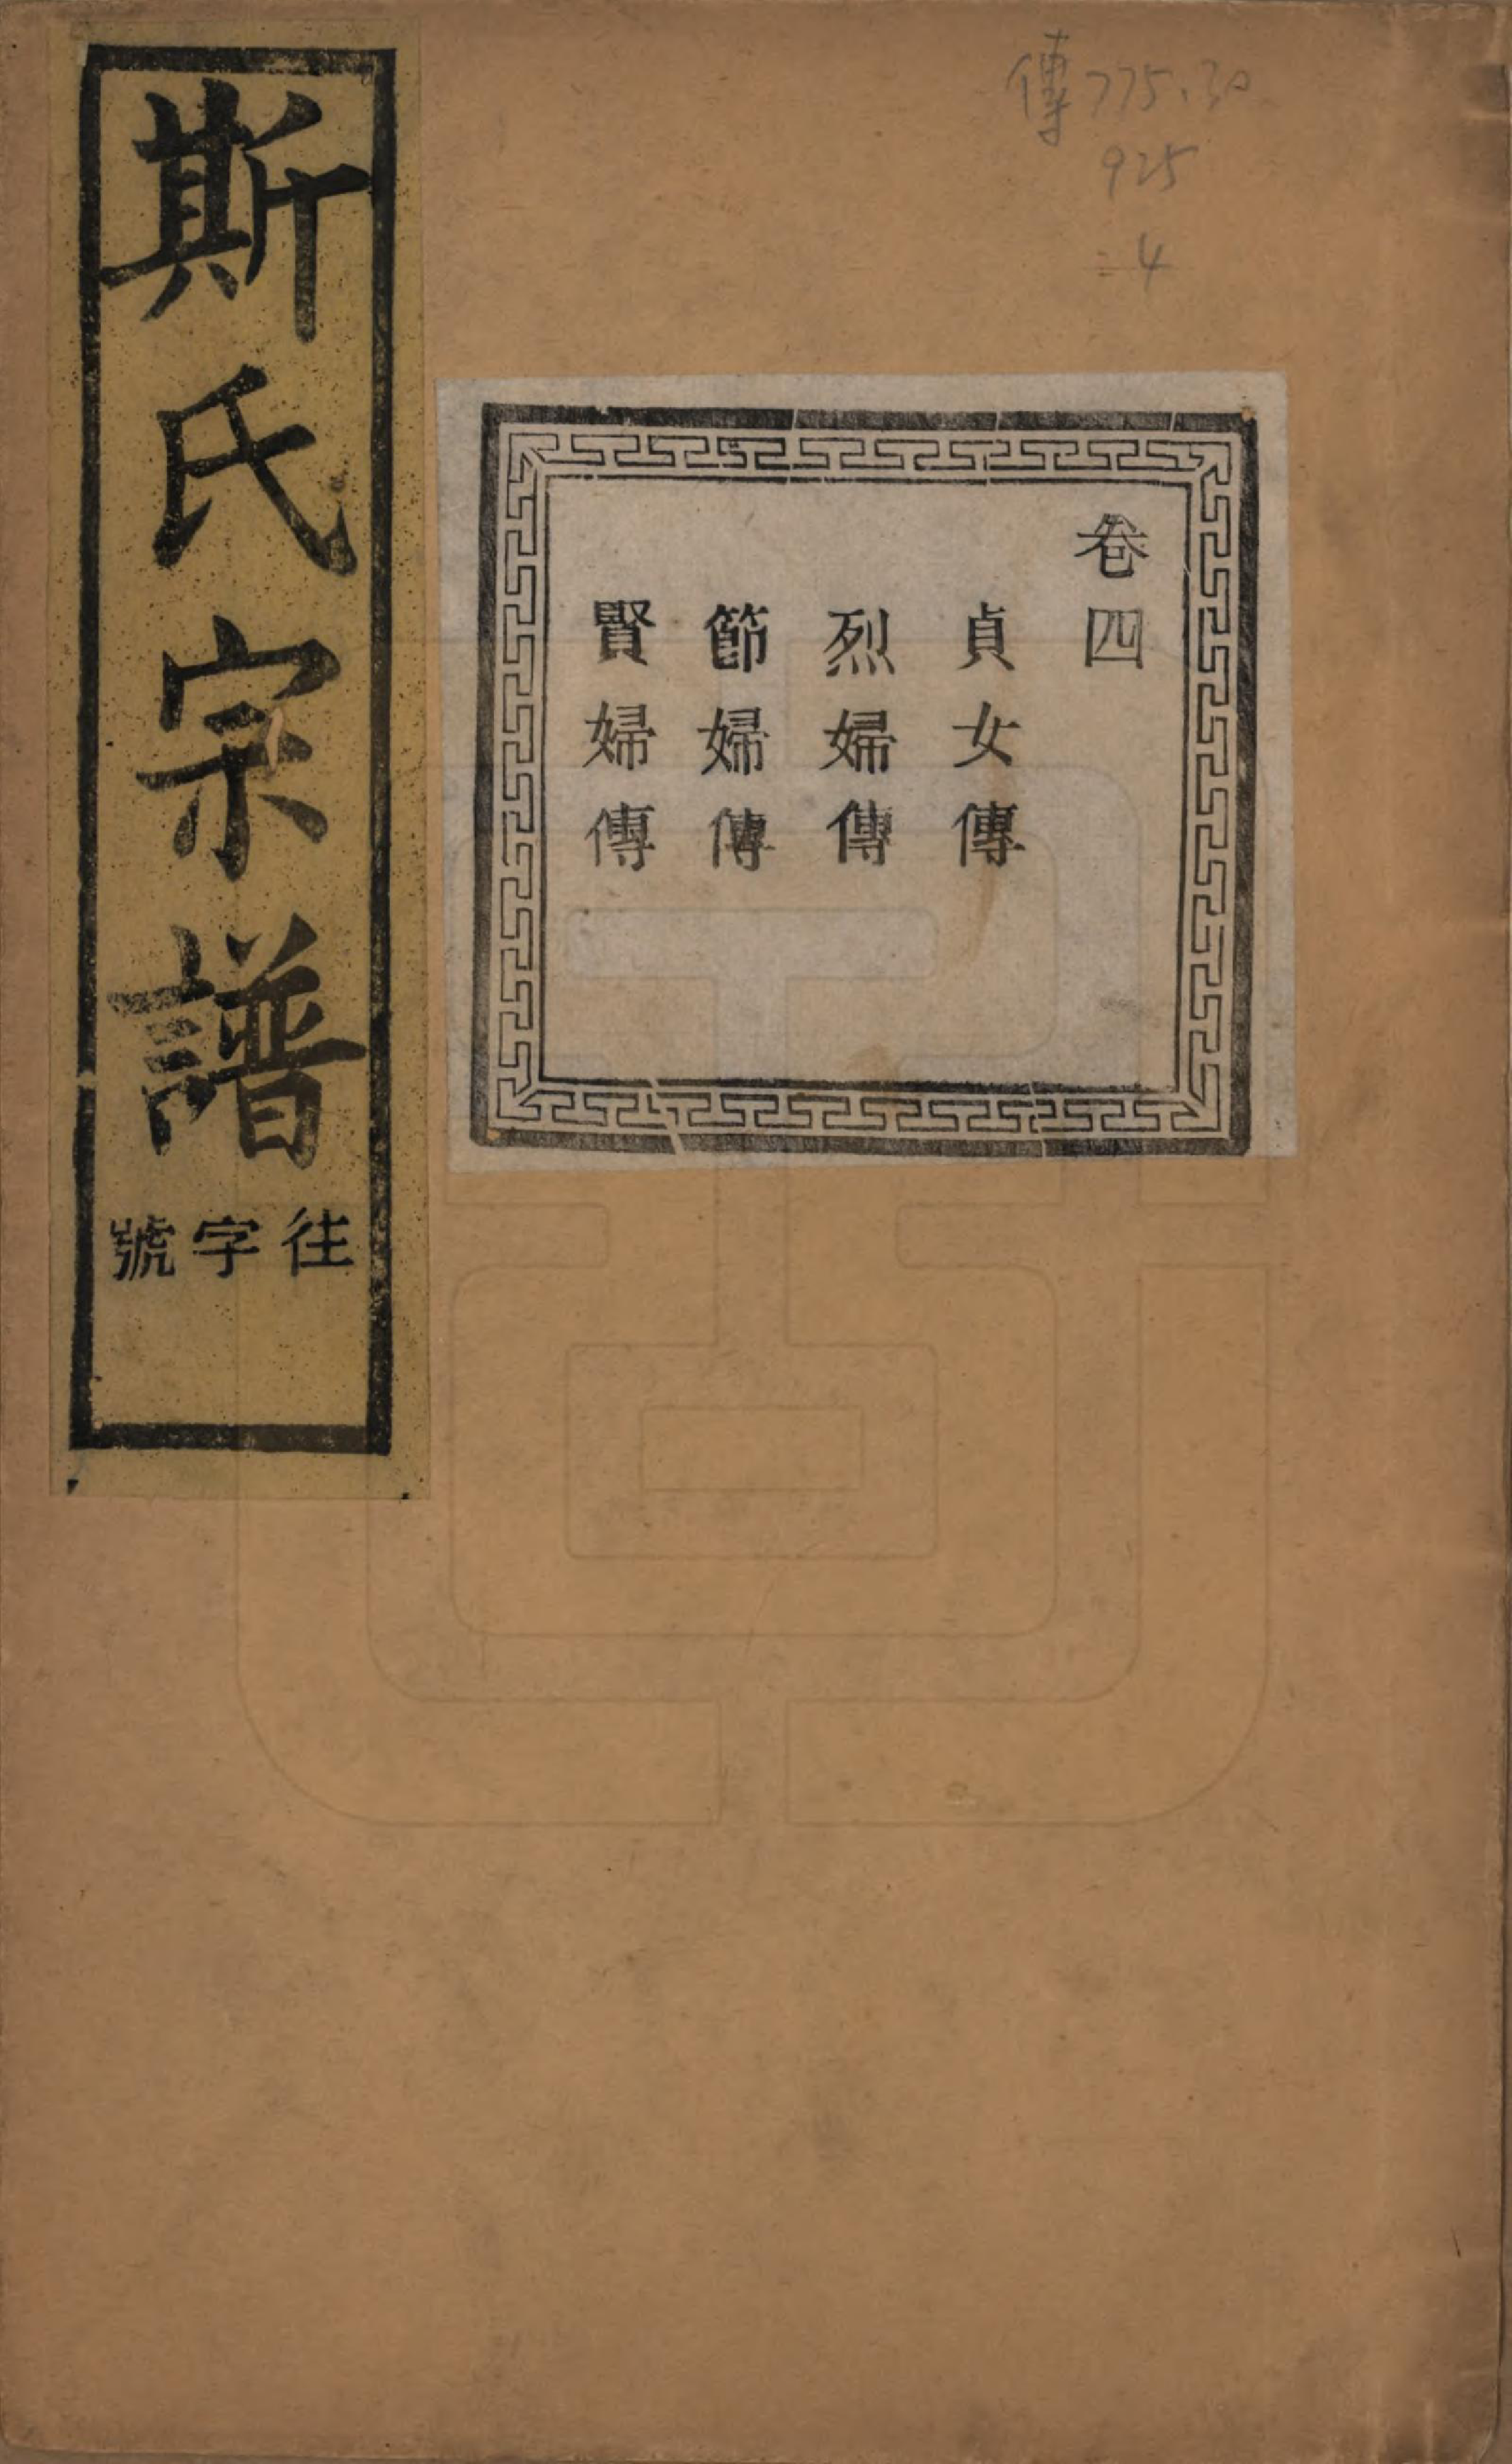 傳775.30
925
:4
卷四
貞女傳
烈婦傳
節婦傳
賢婦傳
斯氏宗譜
往字號